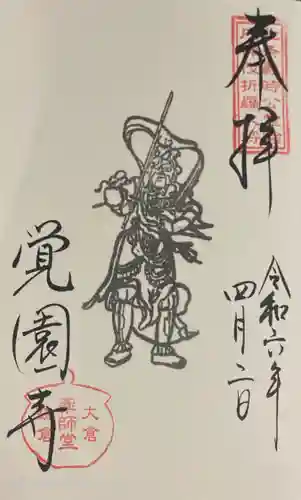 奉拝
令和六年
四月二日
覚園寺
大倉
薬師堂
鎌倉